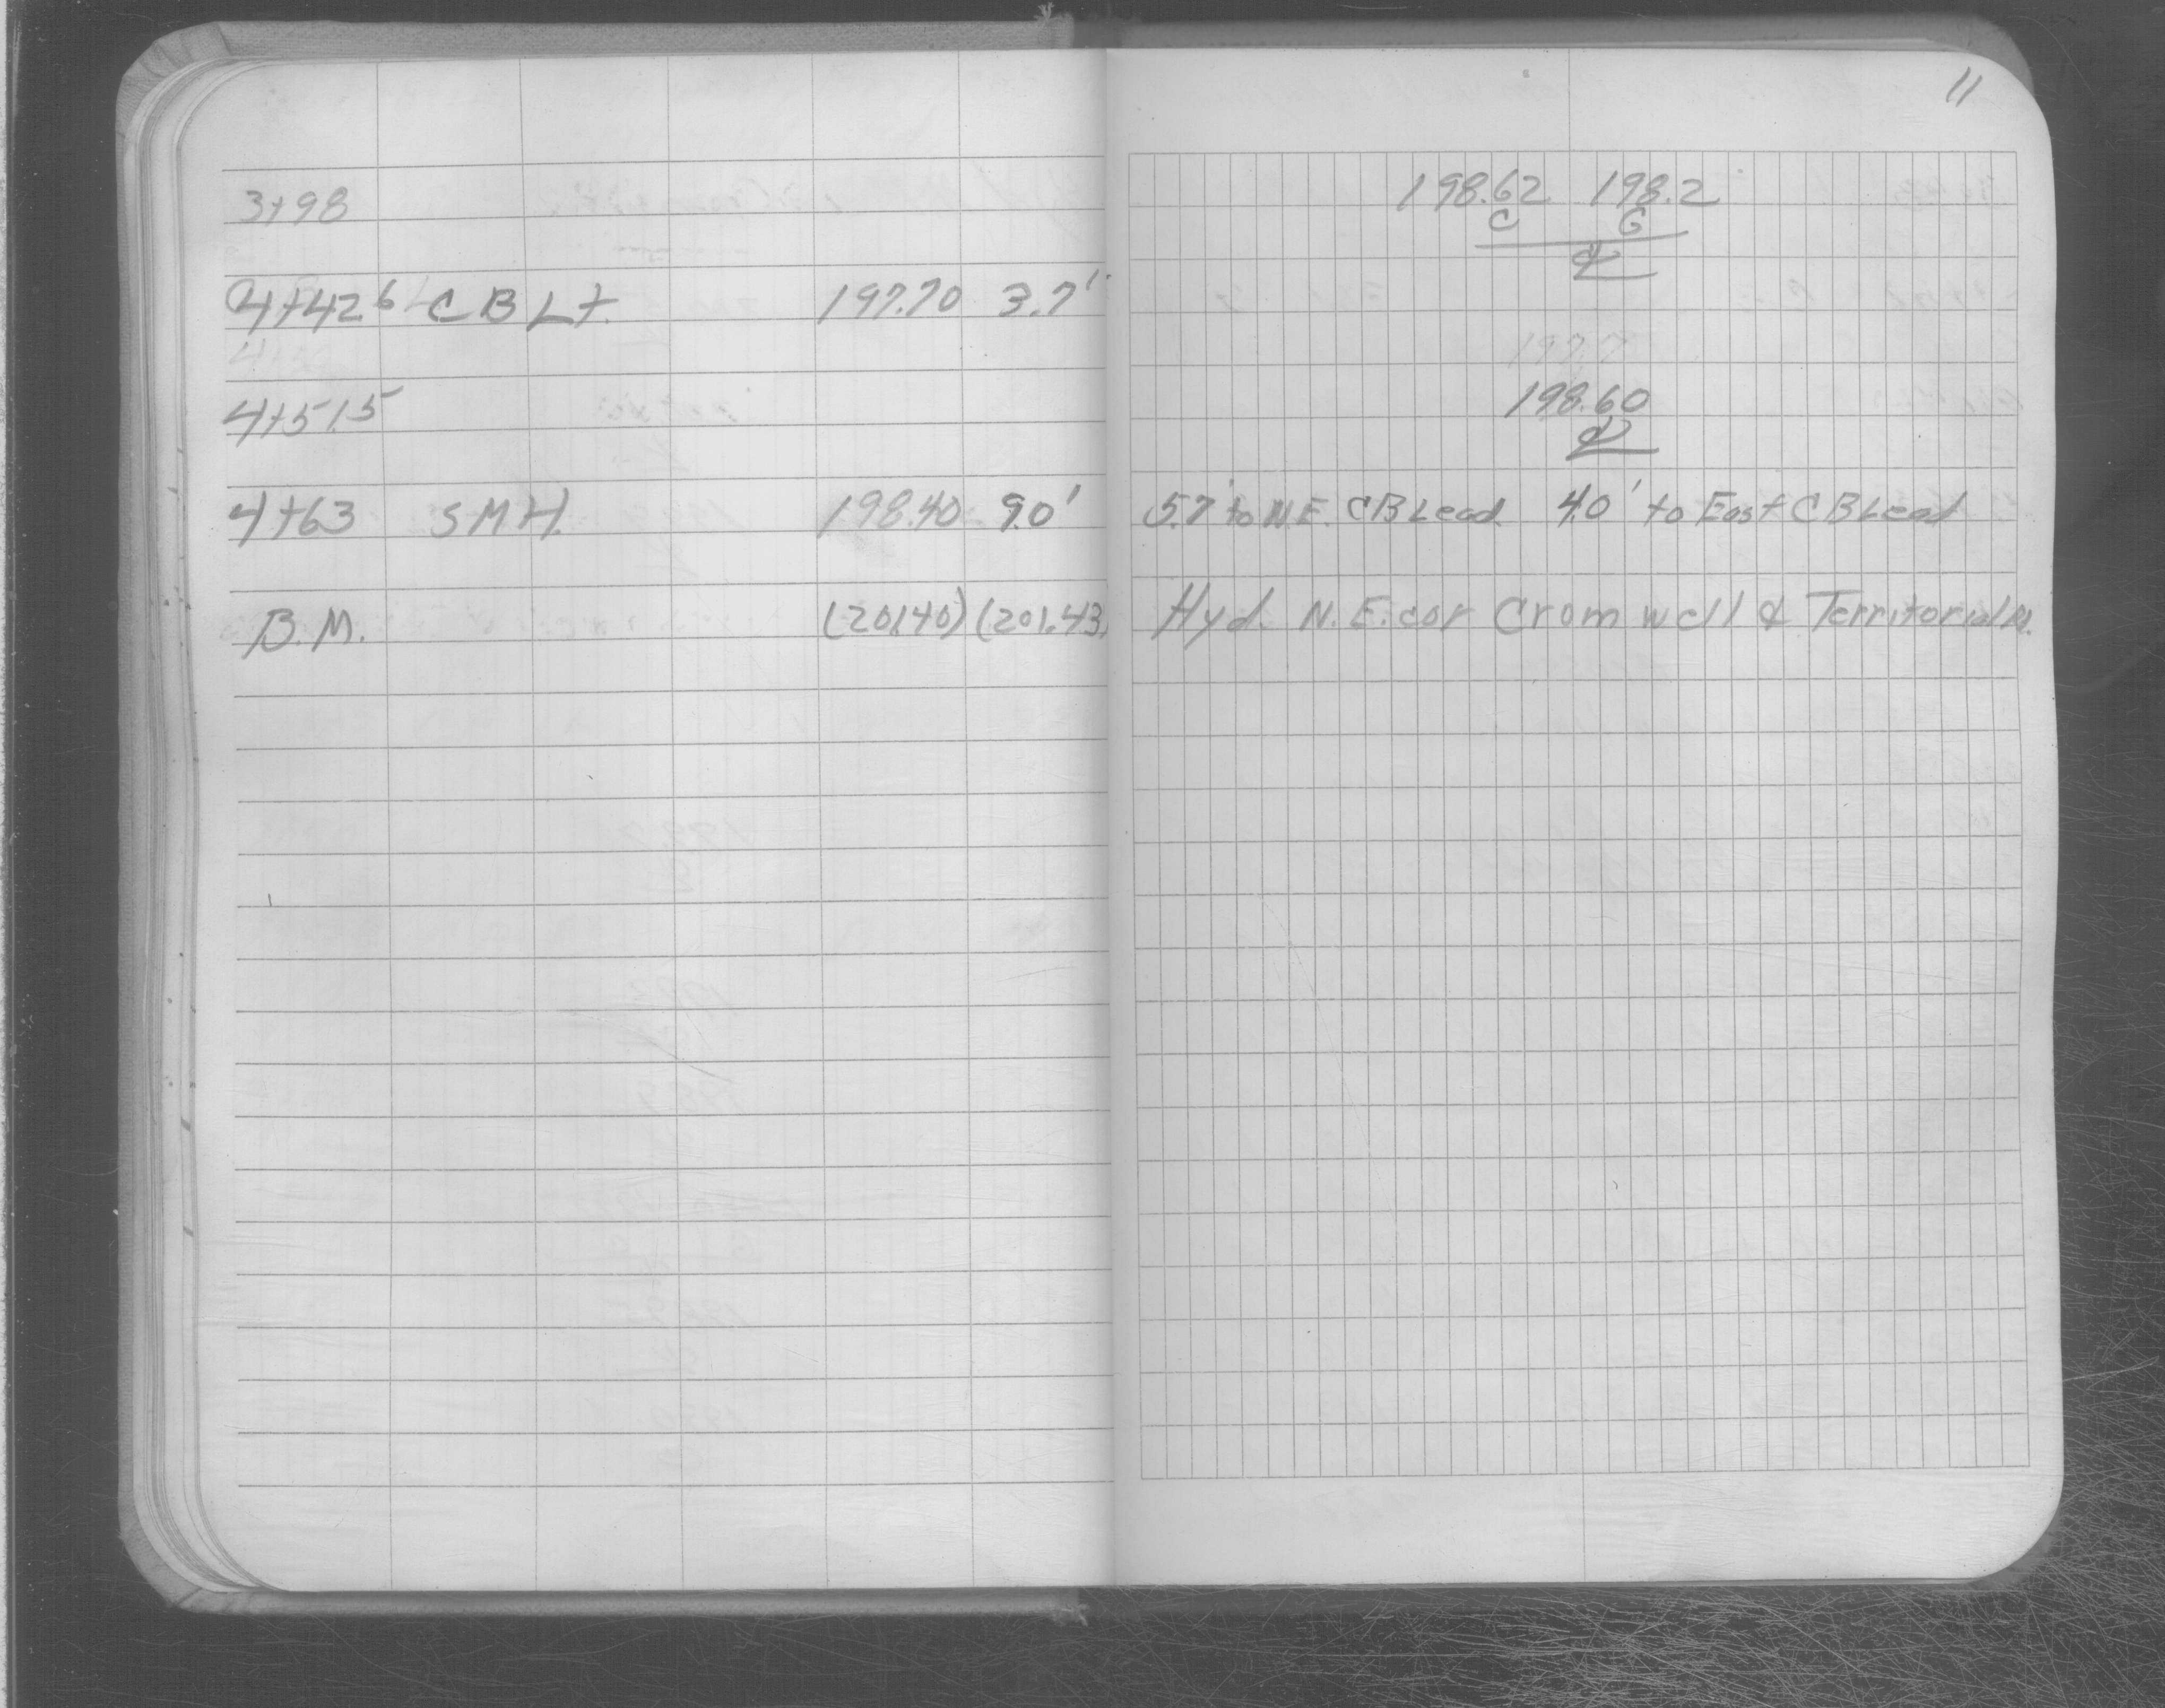 11
3+98 198.62 198.2
C G
℄
4+42.6 CB Lt. 197.70 3.7'
197.7
4+51.5 198.60
℄
4+63 S.M.H. 198.40 9.0' 5.7' to N.E. CB Lead 4.0' to East CB Lead
B.M. (201.40) (201.43) Hyd. N.E. cor Cromwell & Territorial Rd.